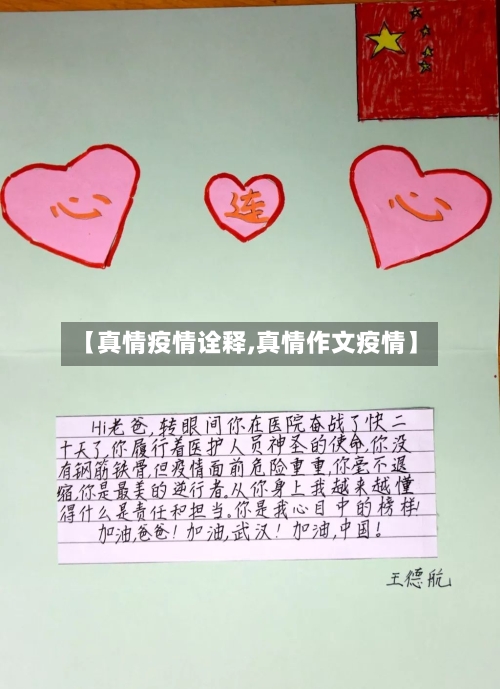 心 连 心
【真情疫情诠释,真情作文疫情】
Hi老爸,转眼间你在医院奋战了快二
十天了,你履行着医护人员神圣的使命,你没
有钢筋铁骨,但疫情面前危险重重,你毫不退
缩,你是最美的逆行者,从你身上我越来越懂
得什么是责任和担当,你是我心目中的榜样!
加油,爸爸!加油,武汉!加油,中国!
王德航